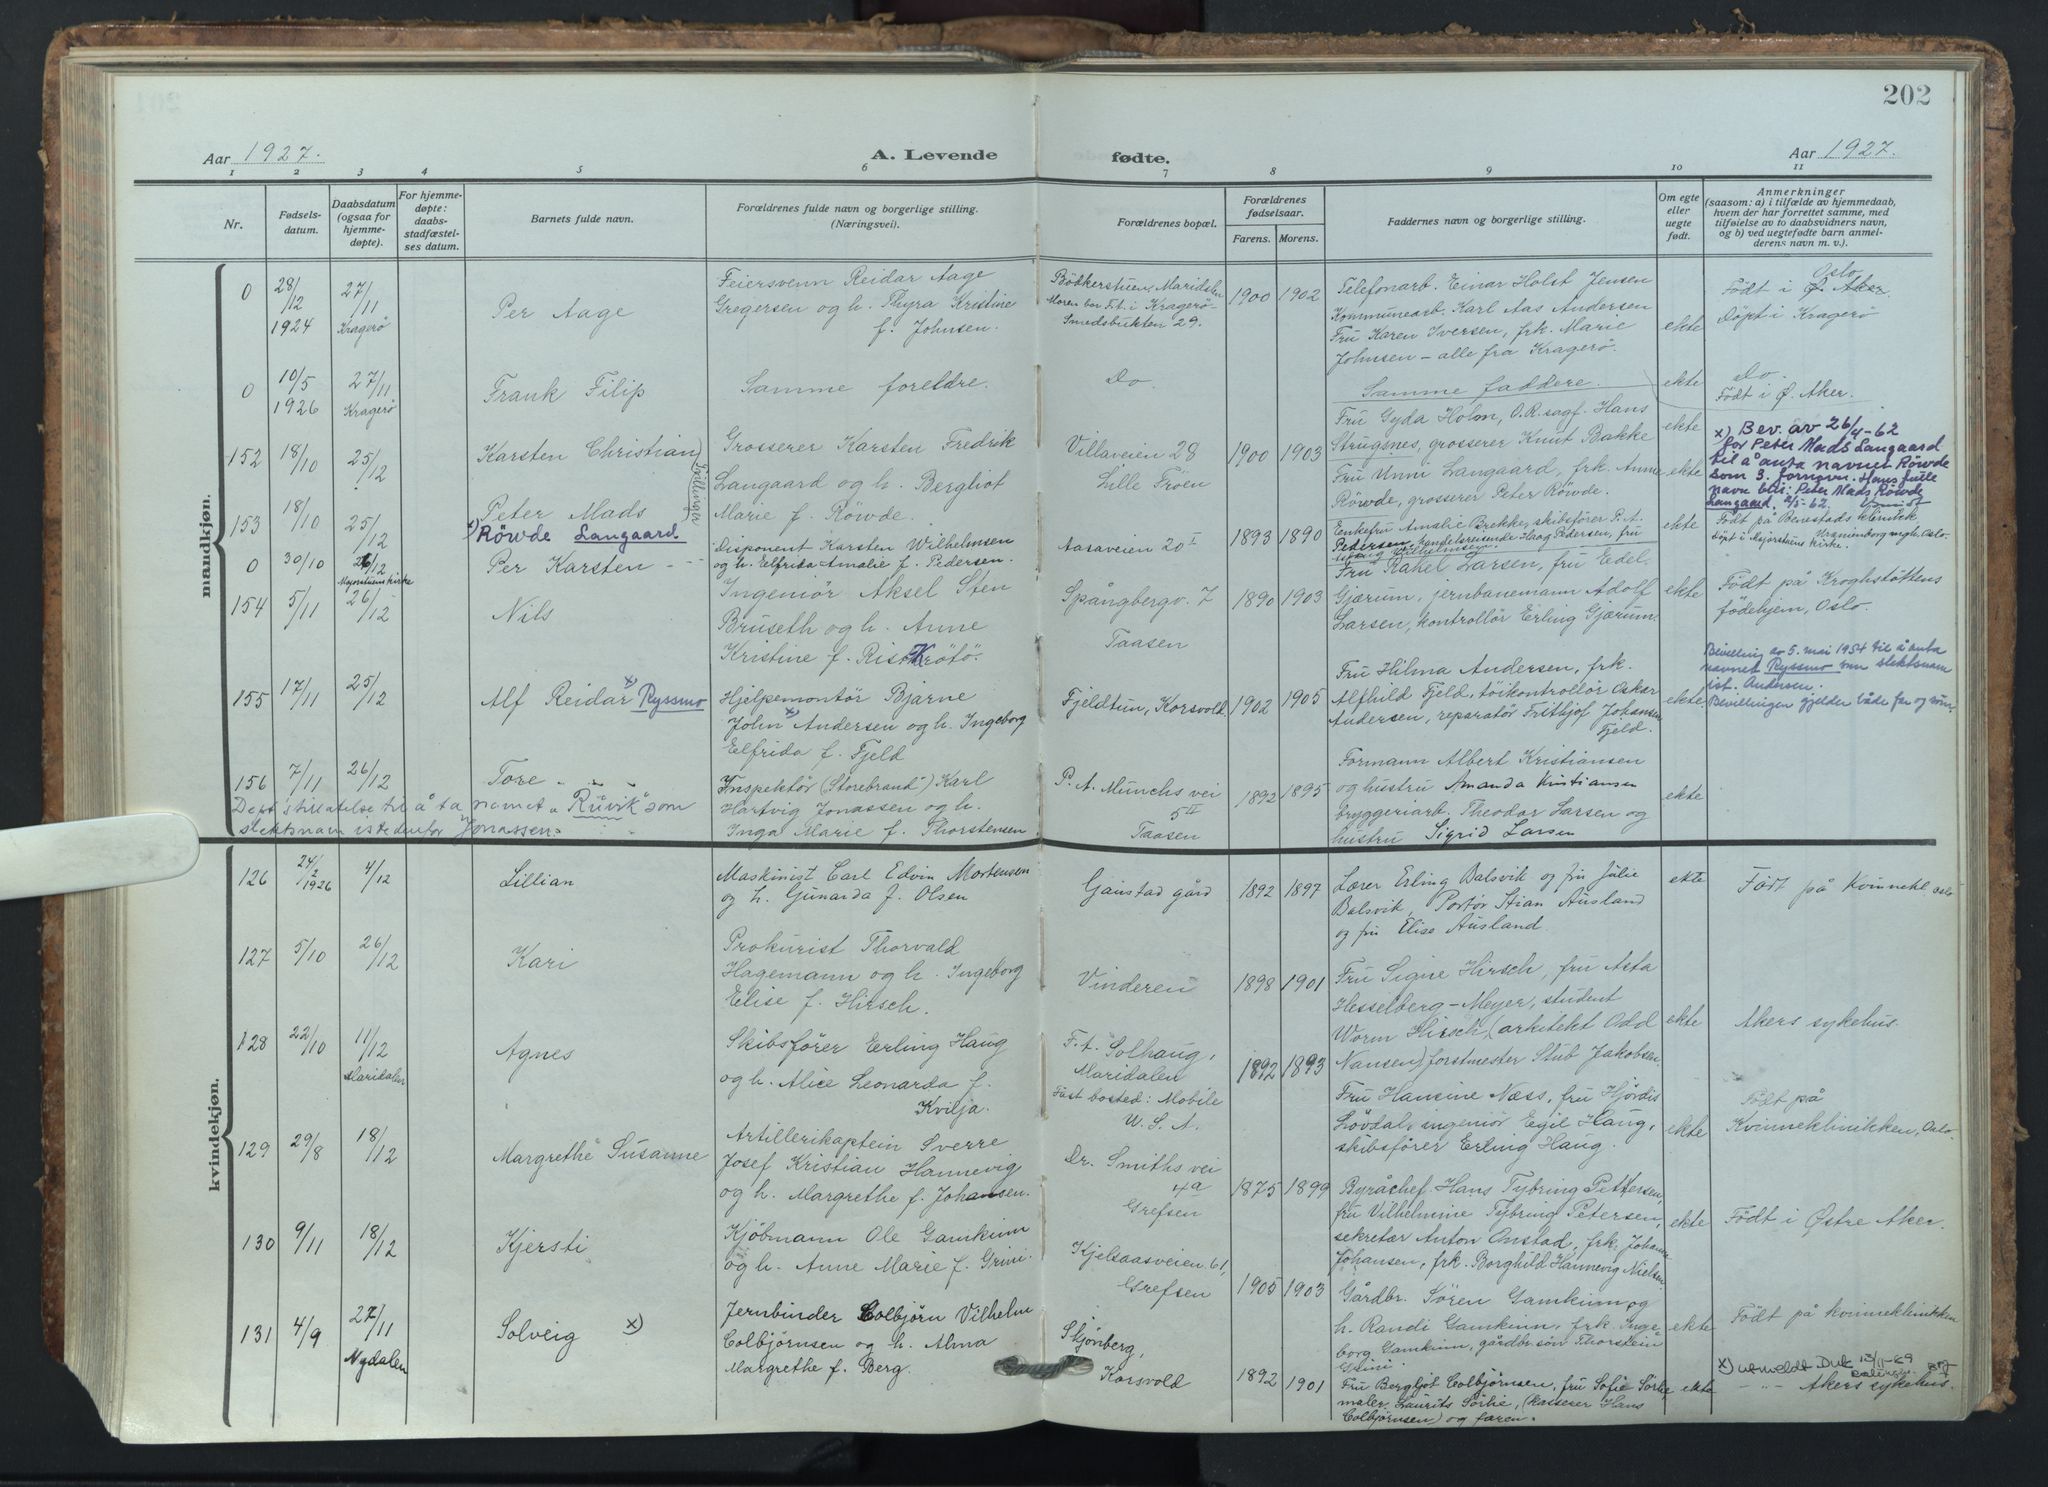 202
Aar 1927.
A. Levende
fødte.
Aar 1927.
1 2 3 4 5 6 7 8 9 10 11
Nr.
Fødsels-
datum.
Daabsdatum
(ogsaa for
hjemme-
døpte).
For hjemme-
døpte:
daabs-
stadfæstel-
ses datum.
Barnets fulde navn.
Forældrenes fulde navn og borgerlige stilling.
(Næringsvei).
Forældrenes bopæl.
Forældrenes
fødselsaar.
Farens. Morens.
Faddernes navn og borgerlige stilling.
Om egte
eller
uegte
født.
Anmerkninger
(saasom: a) i tilfælde av hjemmedaab,
hvem der har forrettet samme, med
tilføielse av to daabsvidners navn,
og b) ved uegtefødte barn anmel-
derens navn m. v.).
mandkjøn.
0
28/12
1924
27/11
Kragerö
Per Aage
Feiersvenn Reidar Aage
Gregersen og h. Thyra Kristine
f. Johnsen.
Bödkerstuen, Maridalen
Moren bor F.t. i Kragerö-
Smedsbukten 29.
1900 1902
Telefonarb. Einar Holst Jensen
Kommunearb. Karl Aas Andersen
Fru Karen Iversen, frk. Marie
Johnsen - alle fra Kragerö.
ekte
Oslo
Födt i Ø. Aker.
Döpt i Kragerö
0
10/5
1926
27/11
Kragerö
Frank Filip
Samme foreldre.
Do.
Samme faddere.
ekte
Do.
Födt i Ø. Aker.
152
18/10
25/12
Karsten Christian
Tvillinger
Grosserer Karsten Fredrik
Langaard og h. Bergliot
Marie f. Röwde.
Villaveien 28
Lille Fröen
1900 1903
Fru Gyda Holm, O.R.sagf. Hans
Strugsnes, grosserer Knut Bakke
Fru Unni Langaard, frk. Anne
Röwde, grosserer Peter Röwde.
ekte
ekte
x) Bev. av 26/4-62
for Peter Mads Langaard
til å anta navnet Röwde
som 3. fornavn. Hans fulle
navn blir: Peter Mads Röwde
Langaard. 2/5-62.
153
18/10
25/12
Peter Mads
x) Röwde Langaard
0
30/10
26/12
Majorstuens kirke
Per Karsten
Disponent Karsten Wilhelmsen
og h. Elfrida Amalie f. Pedersen.
Aasaveien 20 I
1893 1890
Enkefru Amalie Brekke, skibsfører P. A.
Pedersen, handelsreisende Haag Pedersen, fru
Wilhelmsen.
ekte
Födt på Benestads klinikk
Döpt i Majorstuens kirke.
154
5/11
26/12
Nils
Ingeniör Aksel Sten
Bruseth og h. Anne
Kristine f. Riskrötö.
Spångbergv. 7
Taasen
1890 1903
Fru Rakel Larsen, fru Edel
Gjærum, jernbanemann Adolf
Larsen, kontrollör Erling Gjærum.
ekte
Födt på Kroghstöttens
födehjem, Oslo.
155
17/11
25/12
Alf Reidar x) Ryssmo
Hjelpemontör Bjarne
John x) Andersen og h. Ingeborg
Elfrida f. Fjeld
Fjeldtun, Korsvold
1902 1905
Fru Hilma Andersen, frk.
Alfhild Fjeld, töikontrollör Oskar
Andersen, reparatör Frithjof Johansen
Fjeld.
ekte
Bevilling av 5. mai 1954 til å anta
navnet Ryssmo som slektsnavn
ist. Andersen.
Bevillingen gjelder både far og sönn.
156
7/11
26/12
Tore
Inspektör (Storebrand") Karl
Hartvig Jonassen og h.
Inga Marie f. Thorstensen
P. A. Munchs vei
5 II
Taasen
1892 1895
Formann Albert Kristiansen
og hustru Amanda Kristiansen
bryggeriarb. Theodor Larsen og
hustru Sigrid Larsen
ekte
Dept's tillatelse til å ta navnet „Ruvik" som
slektsnavn istedenfor Jonassen.
kvindekjøn.
126
24/2
1926
4/12
Lillian
Maskinist Carl Edvin Mortensen
og h. Gunarda f. Olsen
Gaustad gård
1892 1897
Lærer Erling Balsvik og fru Julie
Balsvik, Portör Stian Ausland
og fru Elise Ausland.
ekte
Födt på Kvinnekl. Oslo
127
5/10
26/12
Kari
Prokurist Thorvald
Hagemann og h. Ingeborg
Elise f. Hirsch.
Vinderen
1898 1901
Fru Signe Hirsch, fru Asta
Hesselberg-Meyer, student
Worm Hirsch, (arkitekt Odd
Nansen) forstmester Stub Jakobsen.
ekte
Akers sykehus.
128
22/10
11/12
Maridalen
Agnes
Skibsförer Erling Haug
og h. Alice Leonarda f.
Kvilja.
F. t. Solhaug,
Maridalen
Fast bosted: Mobile
U. S. A.
1892 1893
Fru Hansine Næss, fru Hjördis
Lövdal, ingeniör Egil Haug,
skibsförer Erling Haug.
ekte
Födt på
Kvinneklinikken, Oslo.
129
29/8
18/12
Margrethe Susanne
Artillerikaptein Sverre
Josef Kristian Hannevig
og h. Margrethe f. Johansen.
Dr. Smiths vei
4a
Grefsen
1875 1899
Byråchef Hans Tybring Pettersen,
fru Vilhelmine Tybring Petersen,
sekretær Anton Onstad, frk. Johanne
Johansen, frk. Borghild Hannevig Nielsen
ekte
Födt i Östre Aker.
130
9/11
18/12
Kjersti
Kjöbmann Ole Gamkinn
og h. Anne Marie f. Grini.
Kjelsaasveien 61,
Grefsen
1905 1903
Gårdbr. Sören Gamkinn og
h. Randi Gamkinn, frk. Inge-
borg Gamkinn, gårdbr.sön Thorstein
Grini.
ekte
Födt på kvinneklinikken
131
4/9
27/11
Nydalen
Solveig x)
Jernbinder Colbjörn Vilhelm
Colbjörnsen og h. Alma
Margrethe f. Berg.
Skjönberg,
Korsvold
1892 1901
Fru Bergljot Colbjörnsen, fru Sofie Sörlie
maler Laurits Sörlie, (kasserer Hans
Colbjörnsen) og faren.
ekte
x) utmeldt Dnk 13/11-69
-"- Akers sykehus.